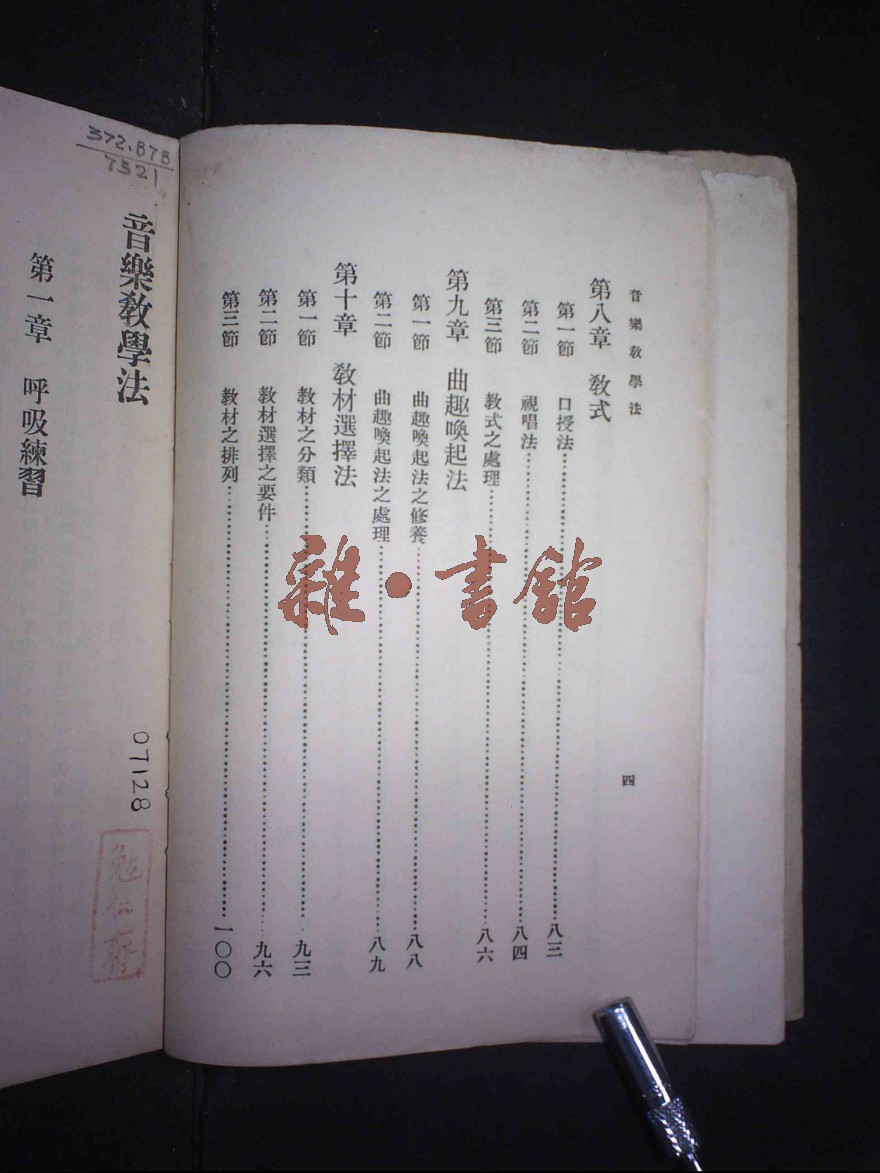 音樂教學法
四
第八章　敎式
第一節　口授法……八三
第二節　視唱法……八四
第三節　敎式之處理……八六
第九章　曲趣喚起法
第一節　曲趣喚起法之修養……八八
第二節　曲趣喚起法之處理……八九
第十章　敎材選擇法
第一節　敎材之分類……九三
第二節　敎材選擇之要件……九六
第三節　敎材之排列……一〇〇
372.878
7521
音樂敎學法
07128
勉仁齋
第一章　呼吸練習
雜·書館